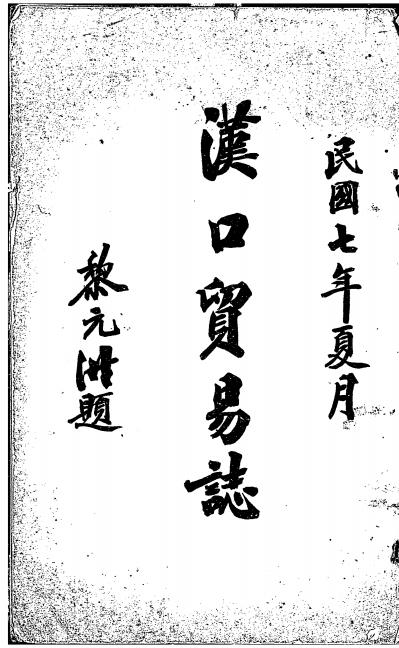 民國七年夏月
漢口貿易誌
黎元洪題